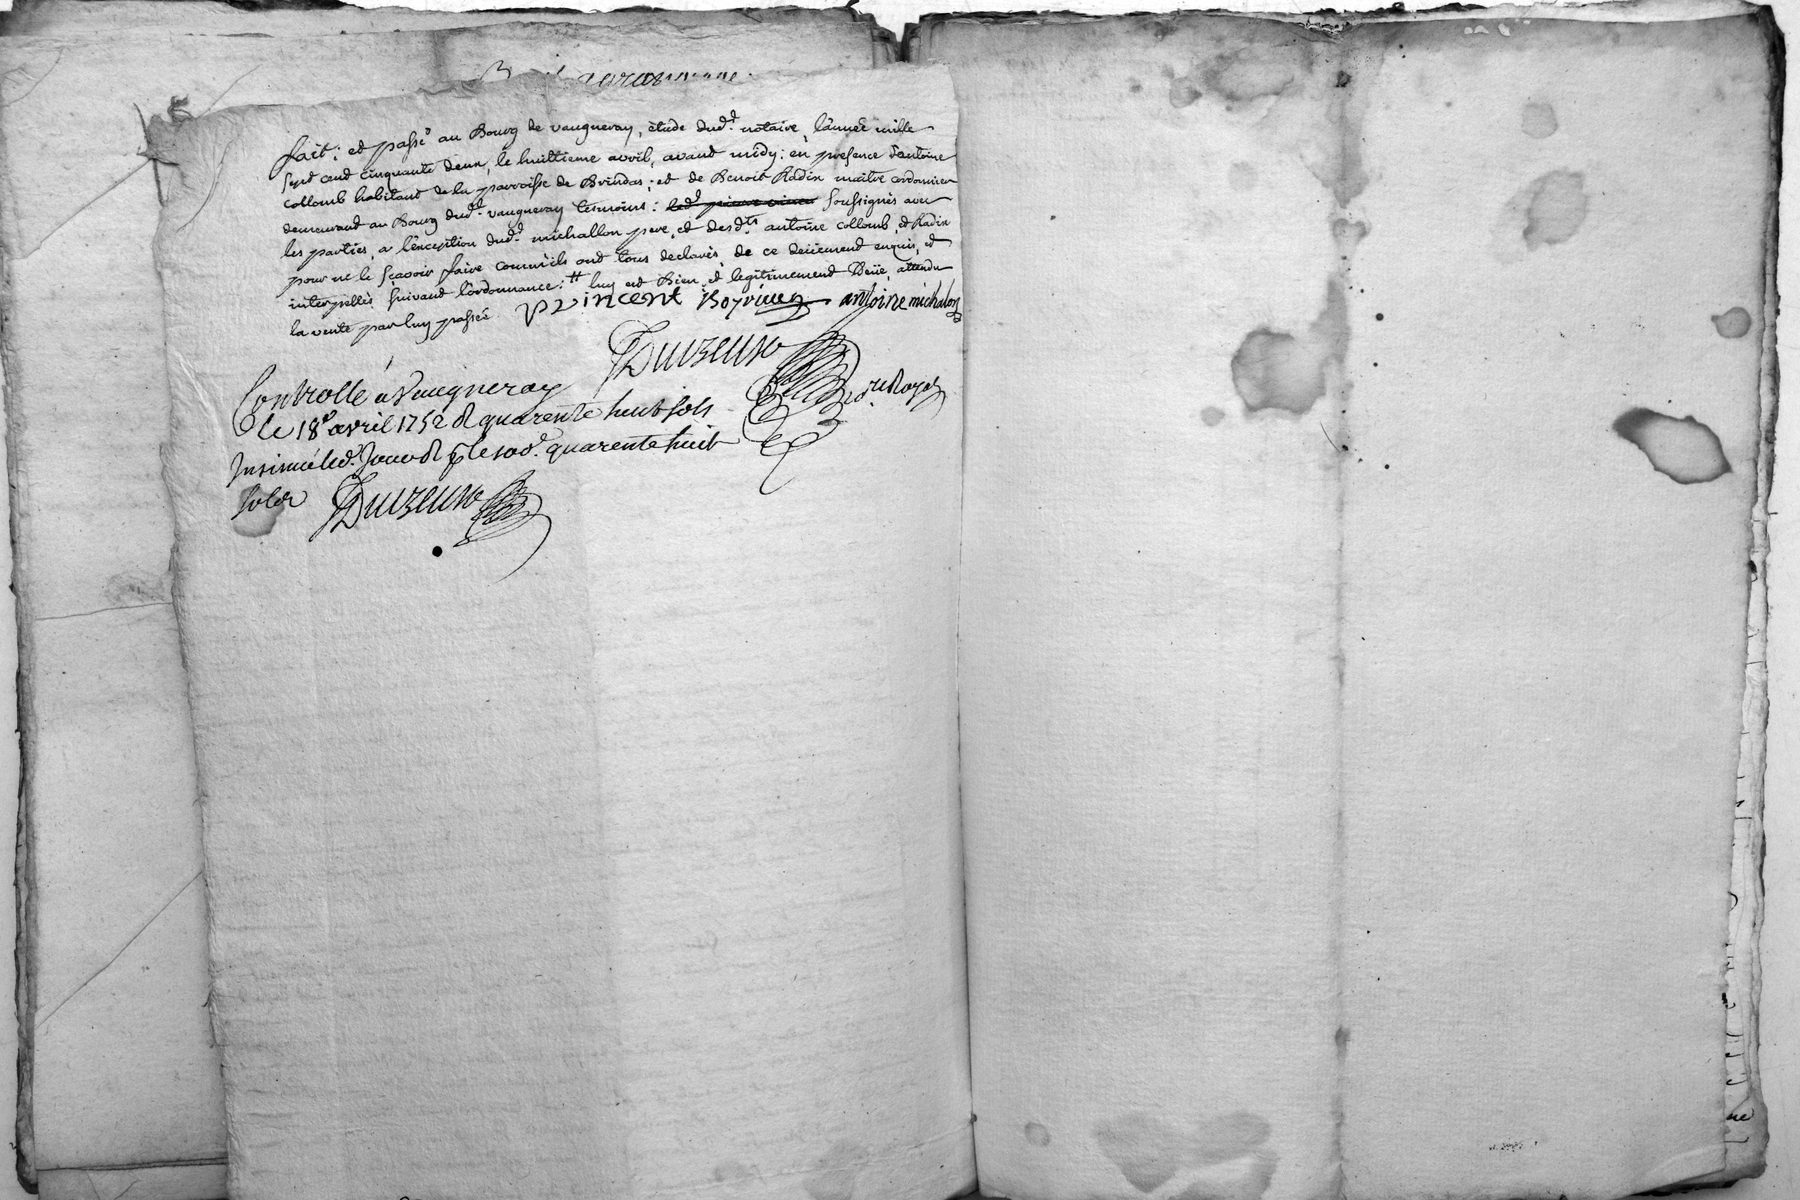 fait: et passé au Bourg de vaugneray, étude dud.ᵗ notaire, l'année mille
sept cent cinquante deux, le huittieme avril, avant midy: en presence d'antoine
collomb habitant de la parroisse de Brindas; et de Benoit Radix maitre cordonnier
demeurant au Bourg dud.ᵗ vaugneray temoins: soussignés avec
les parties, a l'exception dud.ᵗ michallon pere, et desd.ᵗˢ antoine collomb, et Radix
pour ne le sçavoir faire comm'ils ont tous declarés, de ce deüement enquis, et
interpellés suivant l'ordonnance: # luy est Bien, et legitimement Deüe, attendu
la vente par luy passée
vincent antoine michalon
Duvzeuso
Controllé a Vaugneray
le 18ᵉ avril 1752 R quarente huit sols
Insinué led. Jour R quarente huit
sols Duvzeuso